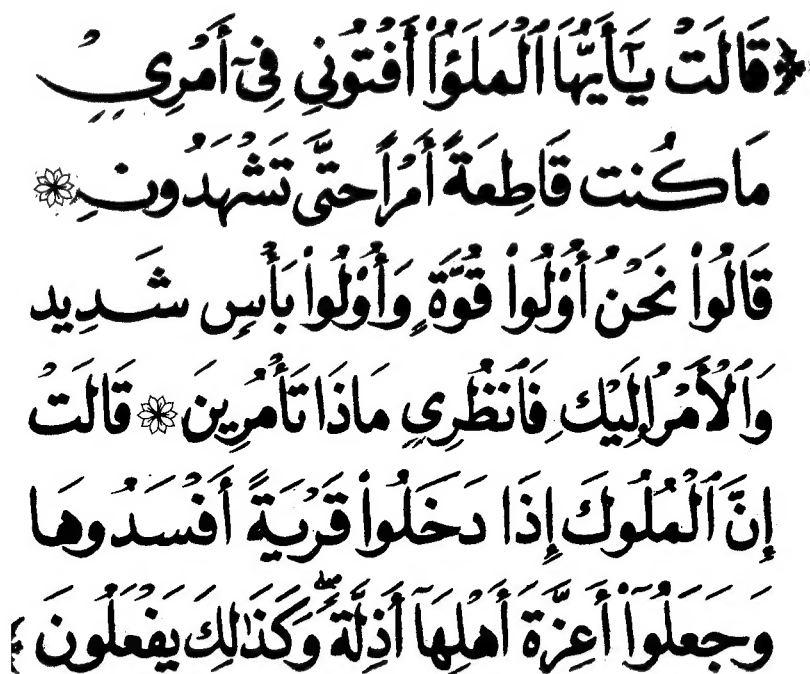 ﴿قَالَتْ يَـٰٓأَيُّهَا ٱلْمَلَؤُا۟ أَفْتُونِي فِىٓ أَمْرِي
مَا كُنتُ قَاطِعَةً أَمْرًا حَتَّىٰ تَشْهَدُونِ ۞
قَالُوا۟ نَحْنُ أُو۟لُوا۟ قُوَّةٍ وَأُو۟لُوا۟ بَأْسٍ شَدِيد
وَٱلْأَمْرُ إِلَيْكِ فَٱنظُرِي مَاذَا تَأْمُرِينَ ۞ قَالَتْ
إِنَّ ٱلْمُلُوكَ إِذَا دَخَلُوا۟ قَرْيَةً أَفْسَدُوهَا
وَجَعَلُوٓا۟ أَعِزَّةَ أَهْلِهَآ أَذِلَّةً ۖ وَكَذَٰلِكَ يَفْعَلُونَ ﴾